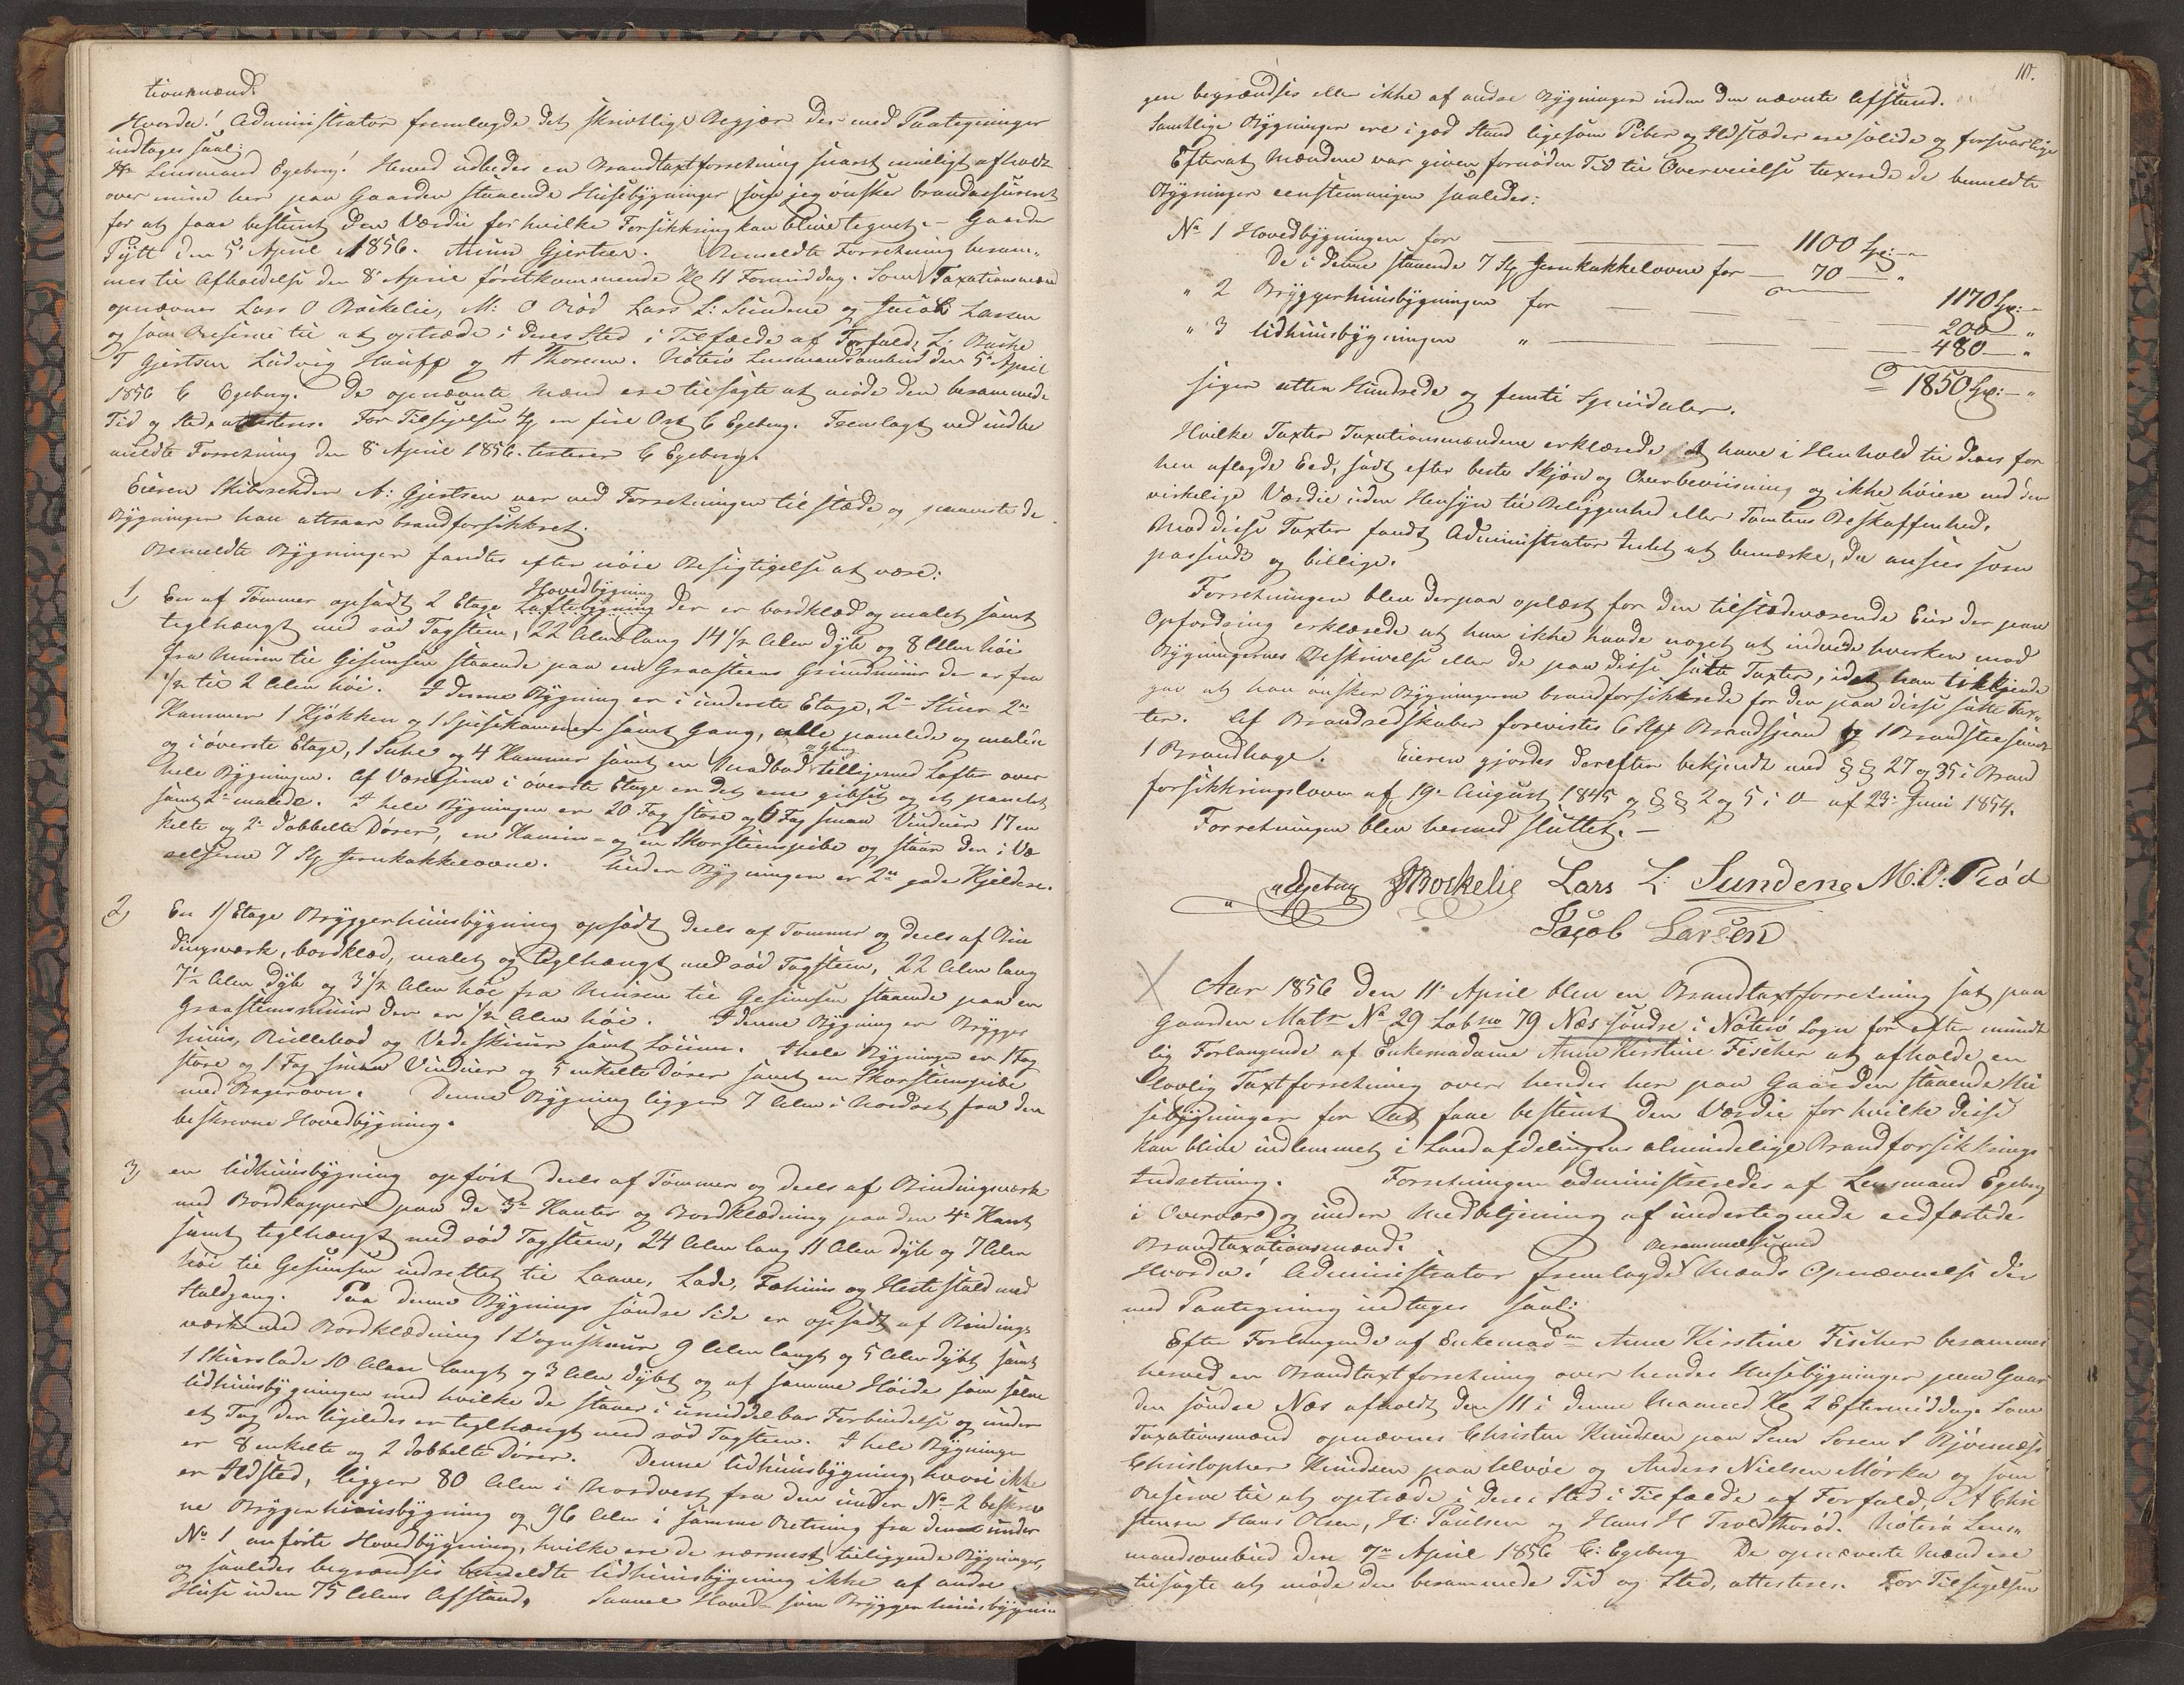 tionsmænd.
Hvorda! Administrator fremlagde det skrivtlige Begjær der med Paategninger
indtages saal:
Hr Lensmand Egeberg! Herved udbedes en Brandtaxtforretning snarest mueligt afholdt
over mine her paa Gaarden staaende Huusebygninger som jeg ønsker brandassureret
for at faae bestemt den Værdie for hvilke Forsikkring kan blive tegnet. - Gaarden
Pytt den 5' April 1856. Anund Gjertsen. Anmeldte Forretning beram„
mes til Afholdelse den 8' April førstkommende Kl 11 Formiddag. Som Taxationsmænd
opnævnes Lars O Boskelie, M: O Rød Lars L: Sundene og Jacob Larsen
og som Reserve til at optræde i deres Sted i Tilfælde af Forfald, L: Buske
T Gjertsen Ludvig Hauff og A Thoresen. Nøterø Lensmandsombud den 5' April
1856 C Egeberg. De opnævnte Mænd ere tilsagte at møde den berammede
Tid og Sted, attesteres. For Tilsigelsen 4/ en fire Ort C Egeberg. Fremlagt ved indbe
meldte Forretning den 8' April 1856. testerer C Egeberg.
Eieren Skibsrehder A: Gjertsen var ved Forretningen tilstæde og paaviste de
Bygninger han attraaer brandforsikkret.
Bemeldte Bygninger fandtes efter nøie Besigtigelse at være:
Hovedbygning
1, En af Tømmer opsadt 2 Etage Laftebygning der er bordklæd og malet samt
teglhængt med rød Tagsteen, 22 Alen lang 14 1/2 Alen dyb og 8 Alen høi
fra Muren til Gesimsen staaende paa en Graasteens Grundmuur der er fra
1/2 til 2 Alen høi. I denne Bygning er i underste Etage, 2de Stuer 2de
Kammer 1 Kjøkken og 1 Spisekammer samt Gang, alle panelede og malede
og i øverste Etage, 1 Suhe og 4 Kammer samt en Madbod og Gang tilligemed Lofter over
hele Bygningen. Af Værelserne i øverste Etage er det ene gibset og et panelet
samt 2de malede. I hele Bygningen er 20 Fag store og 6 Fag smaa Vinduer 17 en
kelte og 2de dobbelte Døre, en Kamin- og en Skorsteenspibe og staar der i Væ
relserne 7 St Jernkakkelovne. Under Bygningen er 2de gode Kjeldere.
2, En 1/ Etage Bryggerhuusbygning opsadt deels af Tømmer og deels af Bin
dingsværk, bordklæd, malet og teglhængt med rød Tagsteen, 22 Alen lang
7 1/2 Alen dyb og 3 1/2 Alen høi fra Muren til Gesimsen staaende paa en
Graasteensmuur der er 1/2 Alen høi. I denne Bygning er Brygger
huus, Rullebod og Vedeskuur samt Løeum. I hele Bygningen er 1 Fag
store og 1 Fag smaa Vinduer og 5 enkelte Døre samt en Skorsteenspibe
med Bagerovn. Denne Bygning ligger 7 Alen i Nordost fra den
beskrevne Hovedbygning.
3, en Udhuusbygning opført deels af Tømmer og deels af Bindingsværk
med Bordkapper paa de 3de Kanter og Bordklædning paa den 4de Kant
samt teglhængt med rød Tagsteen, 24 Alen lang 11 Alen dyb og 7 Alen
høi til Gesimsen indrettet til Laave, Lade, Fæhuus og Hestestald med
Staldgang. Paa denne Bygnings søndre Side er opsadt af Bindings
værk med Bordklædning 1 Vognskuur 9 Alen langt og 5 Alen dybt samt
1 Skierslade 10 Alen langt og 3 Alen dybt og af samme Høide som selve
Udhuusbygningen med hvilke de staaer i umiddelbar Forbindelse og under
et Tag der ligeledes er teglhængt med rød Tagsteen. I hele Bygningen
er 8 enkelte og 2 dobbelte Døre. Denne Udhuusbygning, hvori ikke
er Ildsted, ligger 80 Alen i Nordvest fra den under No 2 beskrev
ne Bryggerhuusbygning og 96 Alen i samme Retning fra den under
No 1 anførte Hovedbygning, hvilke ere de nærmest tilliggende Bygninger,
og saaledes begrændses bemeldte Udhuusbygning ikke af andre
Huse inden 75 Alens Afstand. Saavel Hoved- som Bryggerhuusbygnin
10.
gen begrændses eller ikke af andre Bygninger inden den nævnte Afstand.
Samtlige Bygninger ere i god Stand ligesom Piber og Ildstæder ere solide og forsvarlige
Efterat Mændene var given fornøden Tid til Overveielse taxerede de bemeldte
Bygninger eenstemmigen saaledes:
No 1 Hovedbygningen for 1100 Sp: - „
De i denne staaende 7 St Jernkakkelovne for - 70 - „
1170 Sp: -
„ 2 Bryggerhuusbygningen for 200 - „
„ 3 Udhuusbygningen „ 480 - „
1850 Sp: - „
siger atten Hundrede og femti Speciedaler.
Hvilke Taxter Taxationsmændene erklærede at have i Henhold til deres for
hen aflagde Eed, sadt efter beste Skjøn og Overbeviisning og ikke høiere end den
virkelige Værdie uden Hensyn til Beliggenhed eller Tomtens Beskaffenhed.
Mod disse Taxter fandt Administrator Intet at bemærke, da ansees som
passende og billige.
Forretningen blev derpaa oplæst for den tilstædeværende Eier der paa
Opfordring erklærede at han ikke havde noget at indvende hverken mod
Bygningernes Beskrivelse eller de paa disse satte Taxter, idet han tilkjende
gav at han ønsker Bygningerne brandforsikkrede for den paa disse satte Tax„
ter. Af Brandredskaber forevistes 6 Stk Brandspand og 1 Brandstie samt
1 Brandhage. Eieren gjordes derefter bekjendt med §§ 27 og 35 i Brand
forsikkringsloven af 19de August 1845 og §§ 2 og 5 i D- af 23de Juni 1854.
Forretningen blev hermed sluttet. -
C Egeberg Boskelie Lars L: Sundene M: O: Rød
Jacob Larsen
X Aar 1856 den 11te April blev en Brandtaxtforretning sat paa
Gaarden Matr No 29 Lob no 79 Næs søndre i Nøterø Sogn for efter mundt
lig Forlangende af Enkemadame Anne Kirstine Fischer at afholde en
lovlig Taxtforretning over hendes her paa Gaarden staaende Hu
sebygninger for at faae bestemt den Værdie for hvilke disse
kan blive indlemmet i Landafdelingens almindelige Brandforsikkrings
Indretning. Forretningen administreredes af Lensmand Egeberg
i Overvær og under Medbetjening af undertegnede eedfæstede
Brandtaxationsmænd.
Berammelse med
Hvorda! Administrator fremlagde Mænds Opnævnelse der
med Paategning indtages saal:
Efter Forlangende af Enkemadame Anne Kirstine Fischer berammes
herved en Brandtaxtforretning over hendes Husebygninger paa Gaar
den søndre Næs afholdt den 11 i denne Maaned Kl 2 Eftermiddag. Som
Taxationsmænd opnævnes Christen Knudsen paa Sem Søren S Bjørnnæs
Christopher Knudsen paa Ulvøe og Anders Nielsen Mørka og som
Reserve til at optræde i deres Sted i Tilfælde af Forfald, A Chri
stensen Hans Olsen, H: Paulsen og Hans H Troldthorød. Nøterø Lens„
mandsombud den 7de April 1856 C: Egeberg De opnævnte Mænd ere
tilsagte at møde den berammede Tid og Sted, attesteres. For Tilsigelsen